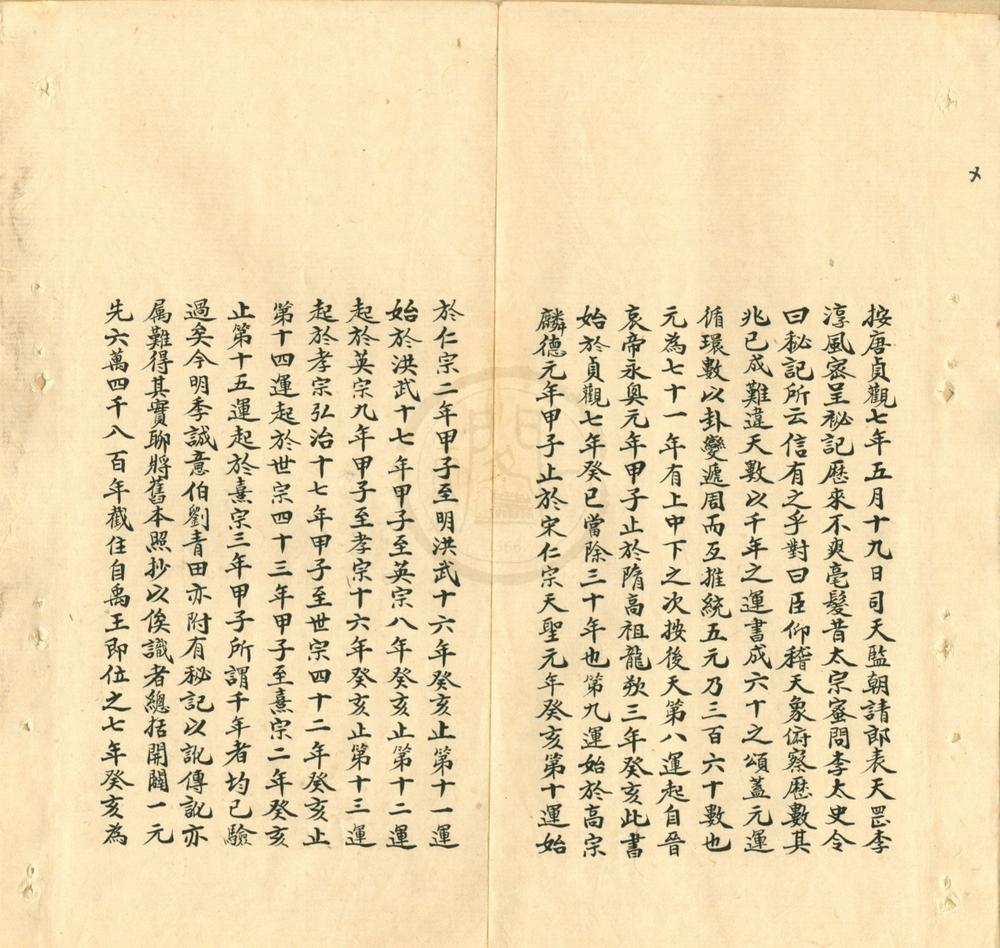 按唐貞觀七年五月十九日司天監朝請郎表天罡李
淳風密呈祕記歷來不爽毫髮昔太宗宻問李太史令
曰秘記所云信有之乎對曰臣仰稽天象俯察歷數其
兆已成難違天數以千年之運書成六十之頌蓋元運
循環數以卦變遞周而互推統五元乃三百六十數也
元為七十一年有上中下之次按後天第八運起自晉
哀帝永奥元年甲子止於隋高祖龍朔三年癸亥此書
始於貞觀七年癸巳當除三十年也第九運始於高宗
麟德元年甲子止於宋仁宗天聖元年癸亥第十運始
於仁宗二年甲子至明洪武十六年癸亥止第十一運
始於洪武十七年甲子至英宗八年癸亥止第十二運
起於英宗九年甲子至孝宗十六年癸亥止第十三運
起於孝宗弘治十七年甲子至世宗四十二年癸亥止
第十四運起於世宗四十三年甲子至熹宗二年癸亥
止第十五運起於熹宗三年甲子所謂千年者均已驗
過矣今明季誠意伯劉青田亦附有秘記以訛傳訛亦
属難得其實聊將舊本照抄以俟識者總括開闢一元
先六萬四千八百年截住自禹王即位之七年癸亥為